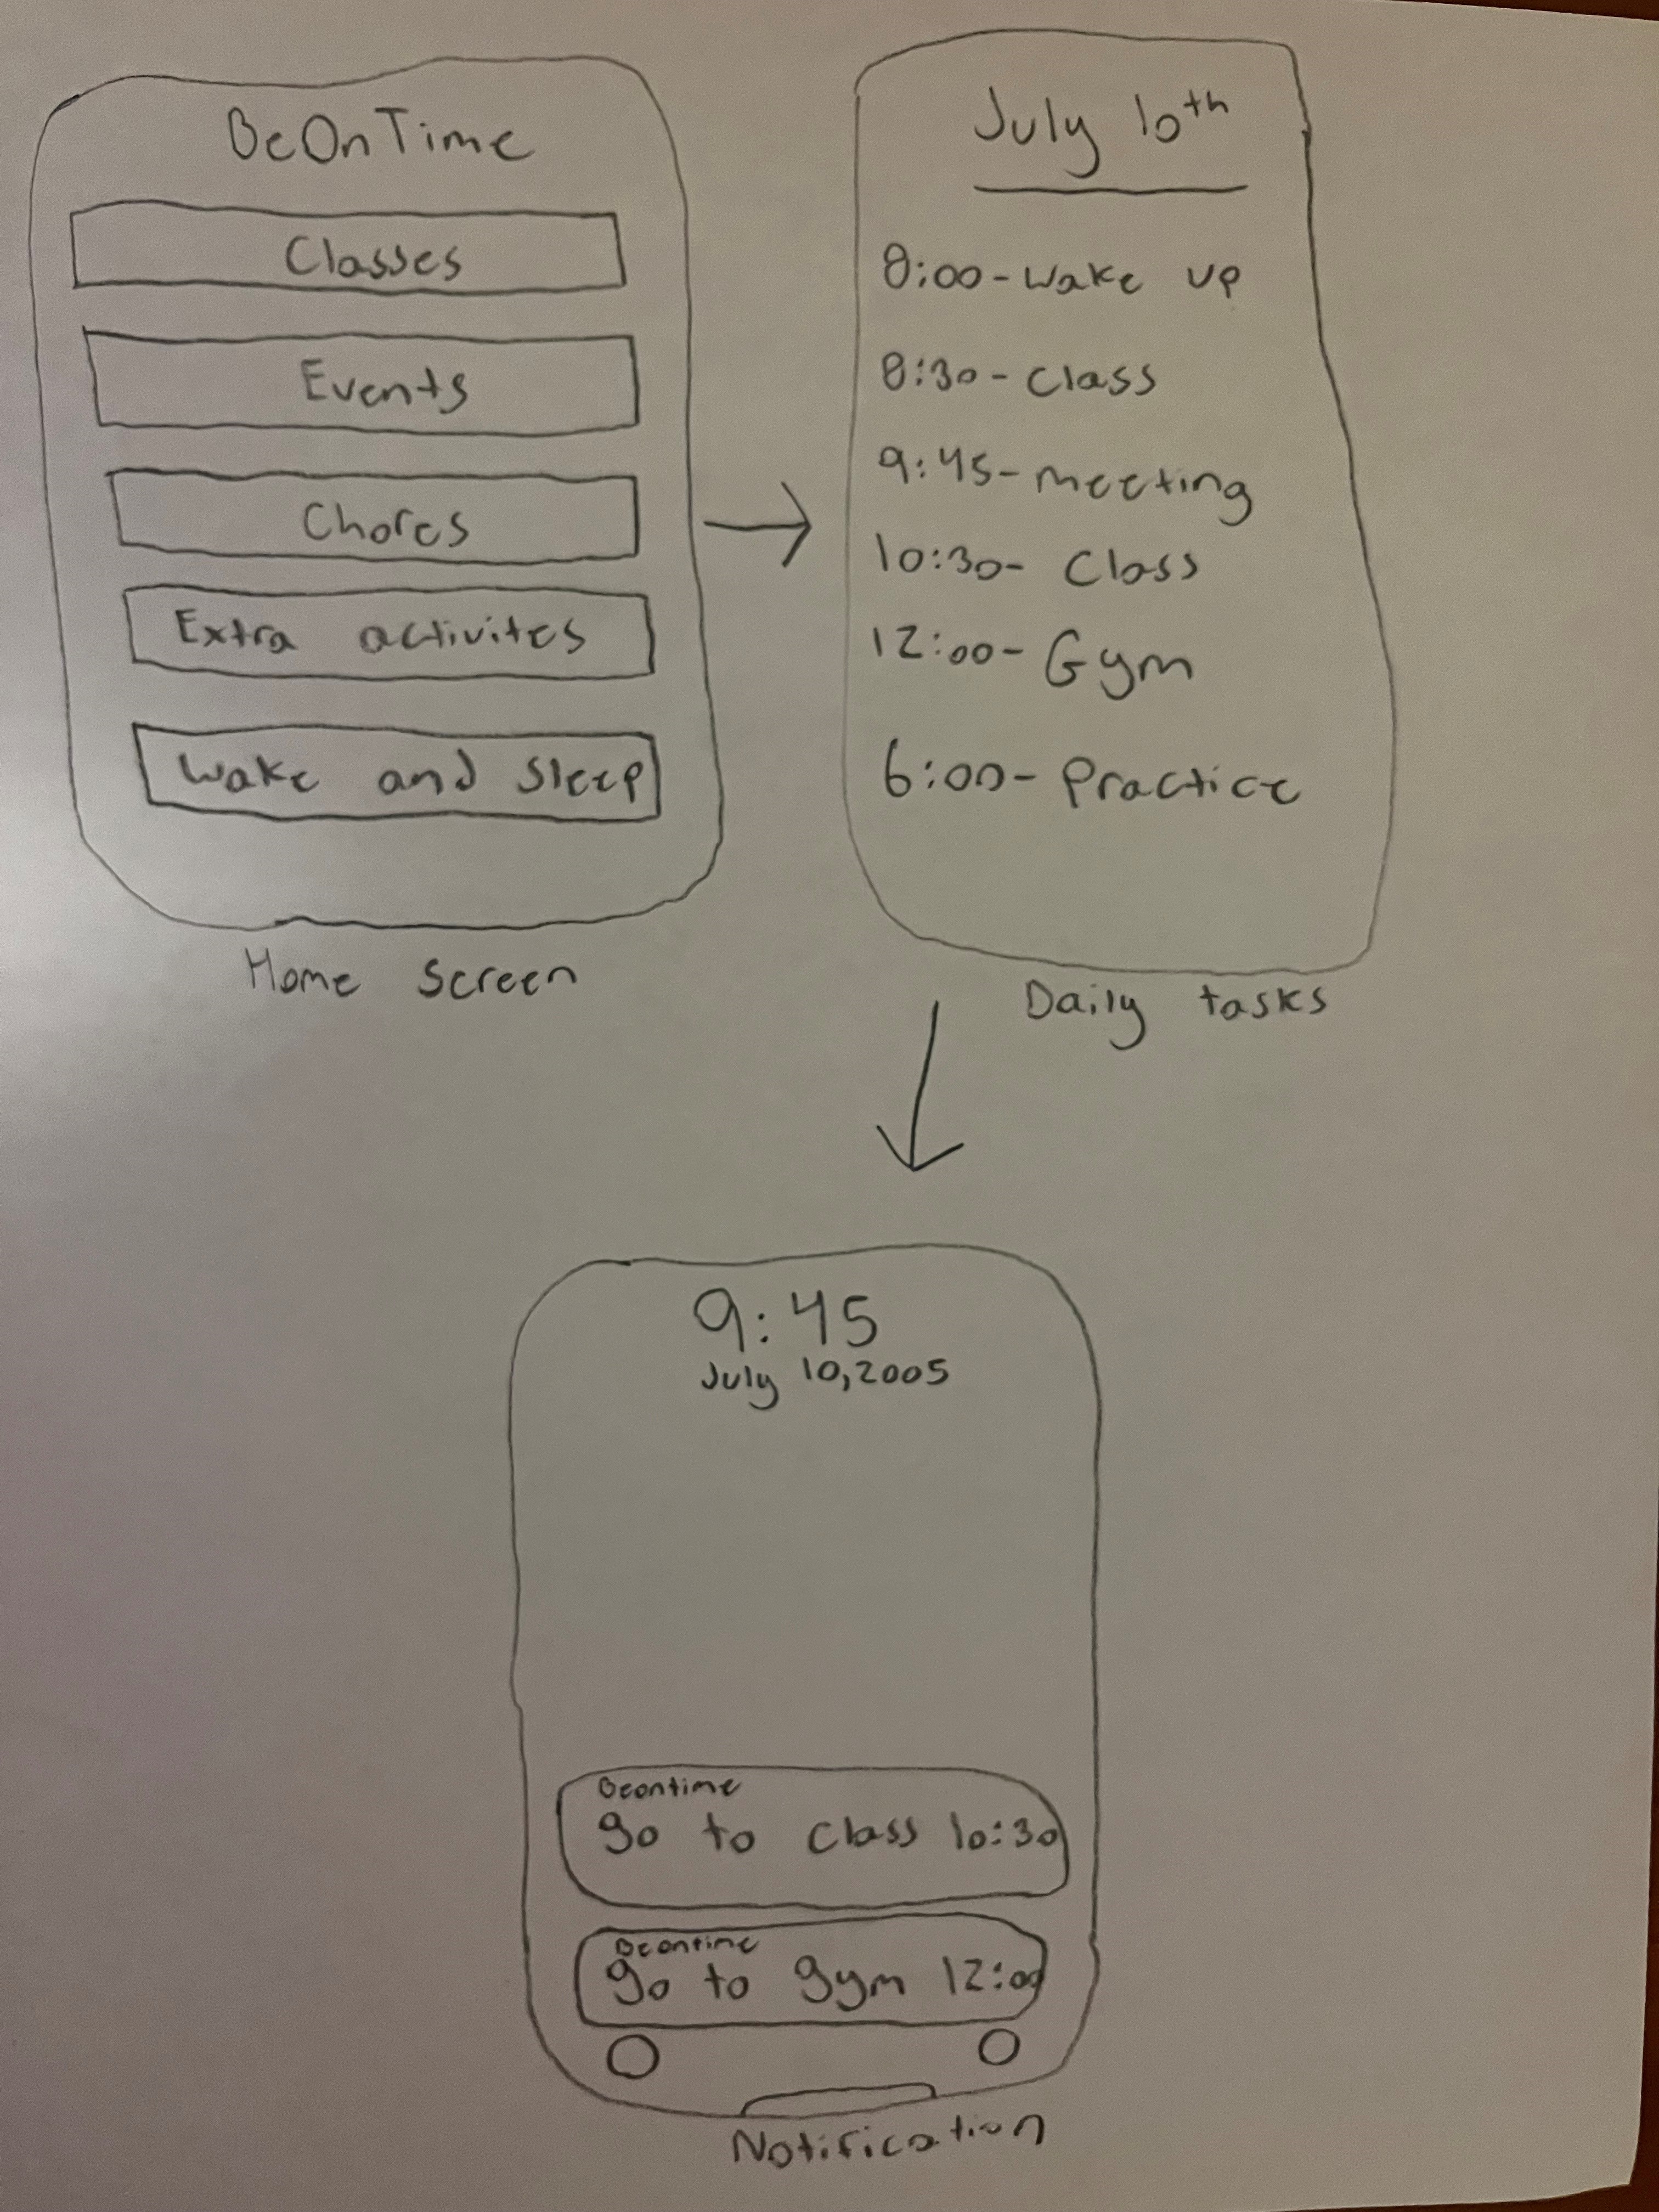 BeOnTime
Classes
Events
Chores
Extra activites
Wake and Sleep
Home Screen
July 10th
8:00-Wake up
8:30-Class
9:45-meeting
10:30- Class
12:00-Gym
6:00-Practice
Daily tasks
9:45
July 10,2005
Beontime
go to class 10:30
Beontime
go to gym 12:00
Notification